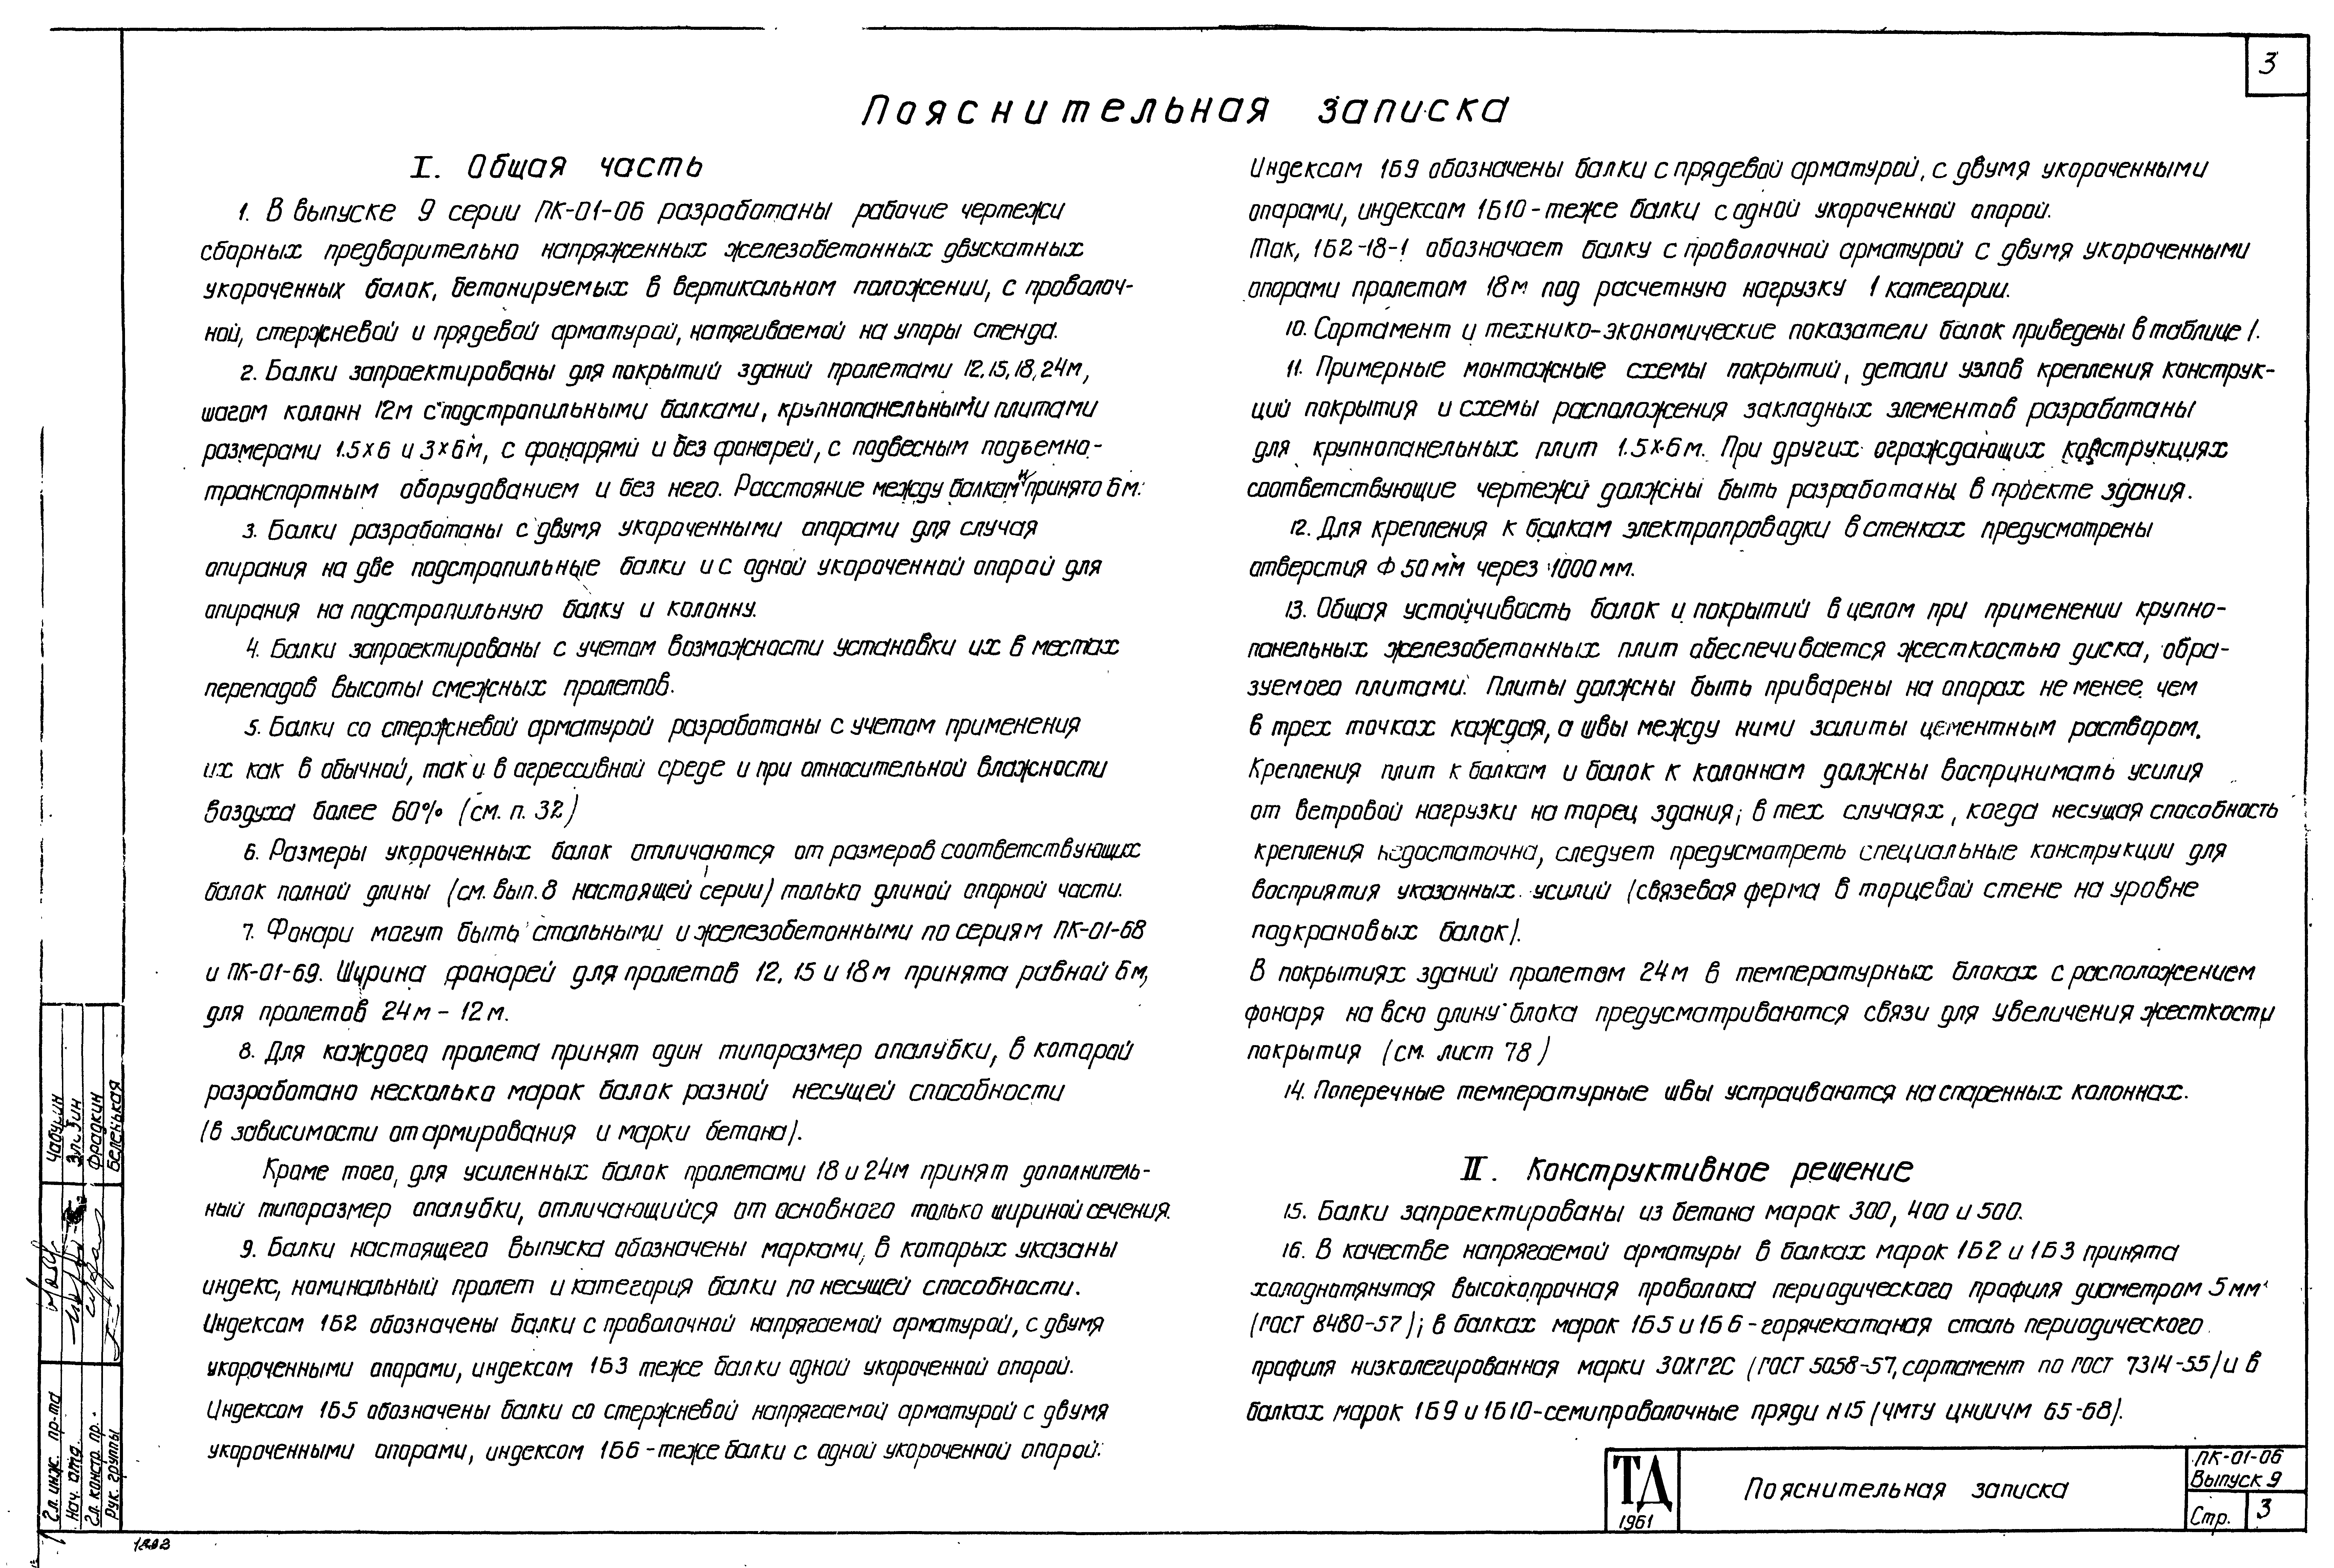 3
Пояснительная записка
I. Общая часть
1. В выпуске 9 серии ПК-01-06 разработаны рабочие чертежи
сборных предварительно напряженных железобетонных двускатных
укороченных балок, бетонируемых в вертикальном положении, с проволоч-
ной, стержневой и прядевой арматурой, натягиваемой на упоры стенда.
2. Балки запроектированы для покрытий зданий пролетами 12, 15, 18, 24м,
шагом колонн 12м с подстропильными балками, крупнопанельными плитами
размерами 1.5×6 и 3×6м, с фонарями и без фонарей, с подвесным подъемно-
транспортным оборудованием и без него. Расстояние между балками принято 6м.
3. Балки разработаны с двумя укороченными опорами для случая
опирания на две подстропильные балки и с одной укороченной опорой для
опирания на подстропильную балку и колонну.
4. Балки запроектированы с учетом возможности установки их в местах
перепадов высоты смежных пролетов.
5. Балки со стержневой арматурой разработаны с учетом применения
их как в обычной, так и в агрессивной среде и при относительной влажности
воздуха более 60% (см. п. 32)
6. Размеры укороченных балок отличаются от размеров соответствующих
балок полной длины (см. вып. 8 настоящей серии) только длиной опорной части.
7. Фонари могут быть стальными и железобетонными по сериям ПК-01-68
и ПК-01-69. Ширина фонарей для пролетов 12, 15 и 18м принята равной 6м,
для пролетов 24м - 12м.
8. Для каждого пролета принят один типоразмер опалубки, в которой
разработано несколько марок балок разной несущей способности
(в зависимости от армирования и марки бетона).
Кроме того, для усиленных балок пролетами 18 и 24м принят дополнитель-
ный типоразмер опалубки, отличающийся от основного только шириной сечения.
9. Балки настоящего выпуска обозначены марками, в которых указаны
индекс, номинальный пролет и категория балки по несущей способности.
Индексом 1Б2 обозначены балки с проволочной напрягаемой арматурой, с двумя
укороченными опорами, индексом 1Б3 теже балки одной укороченной опорой.
Индексом 1Б5 обозначены балки со стержневой напрягаемой арматурой с двумя
укороченными опорами, индексом 1Б6 - теже балки с одной укороченной опорой.
Индексом 1Б9 обозначены балки с прядевой арматурой, с двумя укороченными
опорами, индексом 1Б10 - теже балки с одной укороченной опорой.
Так, 1Б2-18-1 обозначает балку с проволочной арматурой с двумя укороченными
опорами пролетом 18м под расчетную нагрузку 1 категории.
10. Сортамент и технико-экономические показатели балок приведены в таблице 1.
11. Примерные монтажные схемы покрытий, детали узлов крепления конструк-
ций покрытия и схемы расположения закладных элементов разработаны
для крупнопанельных плит 1.5×6м. При других ограждающих конструкциях
соответствующие чертежи должны быть разработаны в проекте здания.
12. Для крепления к балкам электропроводки в стенках предусмотрены
отверстия Ф 50мм через 1000мм.
13. Общая устойчивость балок и покрытий в целом при применении крупно-
панельных железобетонных плит обеспечивается жесткостью диска, обра-
зуемого плитами. Плиты должны быть приварены на опорах не менее чем
в трех точках каждая, а швы между ними залиты цементным раствором.
Крепления плит к балкам и балок к колоннам должны воспринимать усилия
от ветровой нагрузки на торец здания; в тех случаях, когда несущая способность
крепления недостаточна, следует предусмотреть специальные конструкции для
восприятия указанных усилий (связевая ферма в торцевой стене на уровне
подкрановых балок).
В покрытиях зданий пролетом 24м в температурных блоках с расположением
фонаря на всю длину блока предусматриваются связи для увеличения жесткости
покрытия (см. лист 78)
14. Поперечные температурные швы устраиваются на спаренных колоннах.
II. Конструктивное решение
15. Балки запроектированы из бетона марок 300, 400 и 500.
16. В качестве напрягаемой арматуры в балках марок 1Б2 и 1Б3 принята
холоднотянутая высокопрочная проволока периодического профиля диаметром 5мм
(ГОСТ 8480-57); в балках марок 1Б5 и 1Б6 - горячекатаная сталь периодического
профиля низколегированная марки 30ХГ2С (ГОСТ 5058-57, сортамент по ГОСТ 7314-55) и в
балках марок 1Б9 и 1Б10-семипроволочные пряди н15 (ЧМТУ ЦНИИЧМ 65-68).
Гл. инж. пр-та Чабукин
Нач. отд.
Гл. констр. пр. Фрадкин
Рук. группы Беленькая
ТД
1961
Пояснительная записка
ПК-01-06
Выпуск 9
Стр. 3